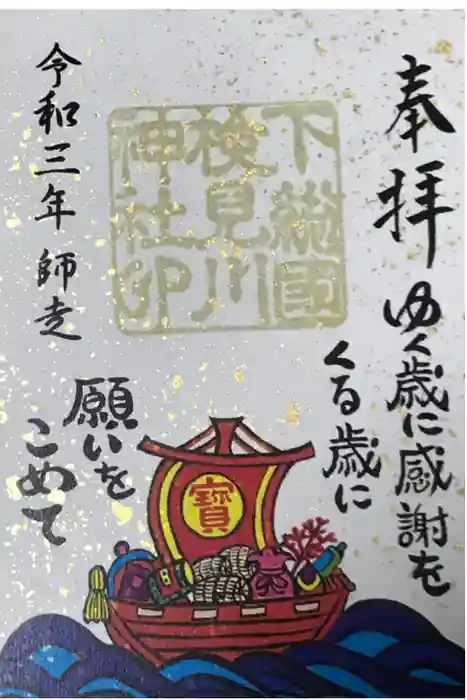 奉拝
ゆく歳に感謝を
くる歳に
願いを
こめて
下総國
検見川
神社印
寳
令和三年 師走